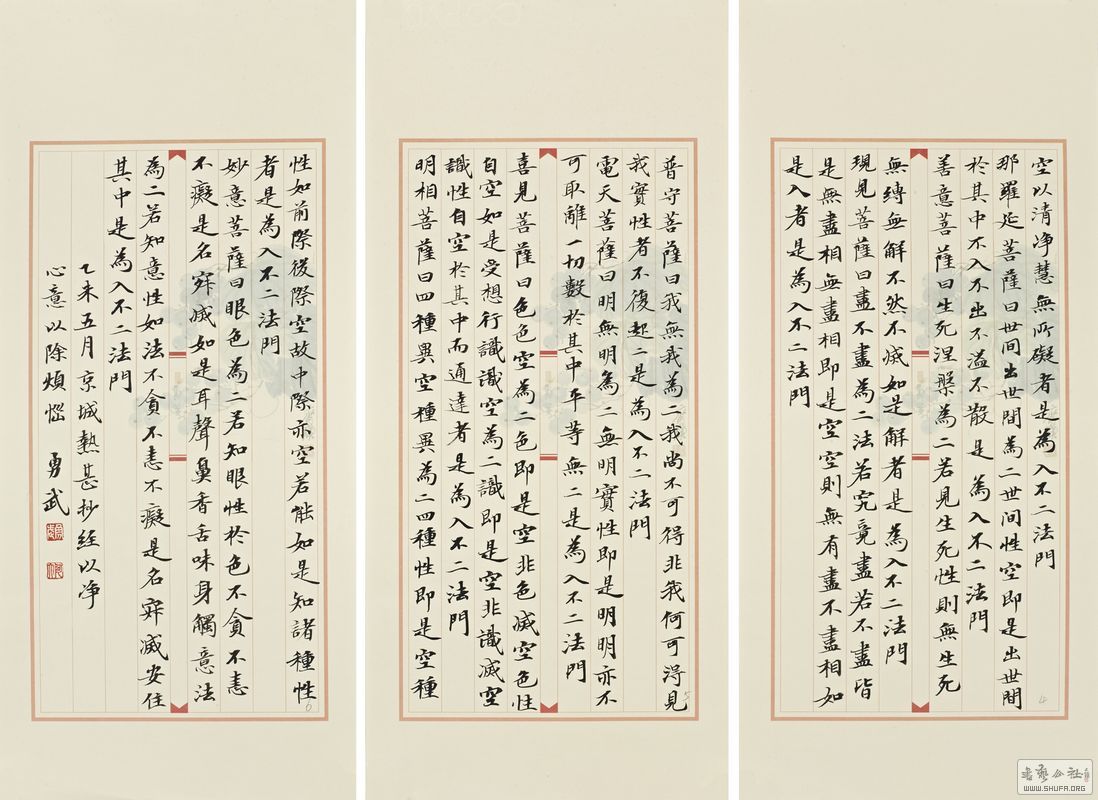 空以清净慧無所礙者是為入不二法門
那羅延菩薩曰世间出世間為二世间性空即是出世間
於其中不入不出不溢不散是為入不二法門
善意菩薩曰生死涅槃為二若見生死性則無生死
無縛無解不然不滅如是解者是為入不二法門
現見菩薩曰盡不盡為二法若究竟盡若不盡皆
是無盡相無盡相即是空空則無有盡不盡相如
是入者是為入不二法門
4
普守菩薩曰我無我為二我尚不可得非我何可得見
我實性者不復起二是為入不二法門
電天菩薩曰明無明為二無明實性即是明明亦不
可取離一切數於其中平等無二是為入不二法門
喜見菩薩曰色色空為二色即是空非色滅空色性
自空如是受想行識識空為二識即是空非識滅空
識性自空於其中而通達者是為入不二法門
明相菩薩曰四種異空種異為二四種性即是空種
5
性如前際後際空故中際亦空若能如是知諸種性
者是為入不二法門
妙意菩薩曰眼色為二若知眼性於色不貪不恚
不癡是名寂滅如是耳聲鼻香舌味身觸意法
為二若知意性如法不貪不恚不癡是名寂滅安住
其中是為入不二法門
乙未五月京城熱甚抄經以净
心意以除煩惱 勇武
6
書藝公社
WWW.SHUFA.ORG